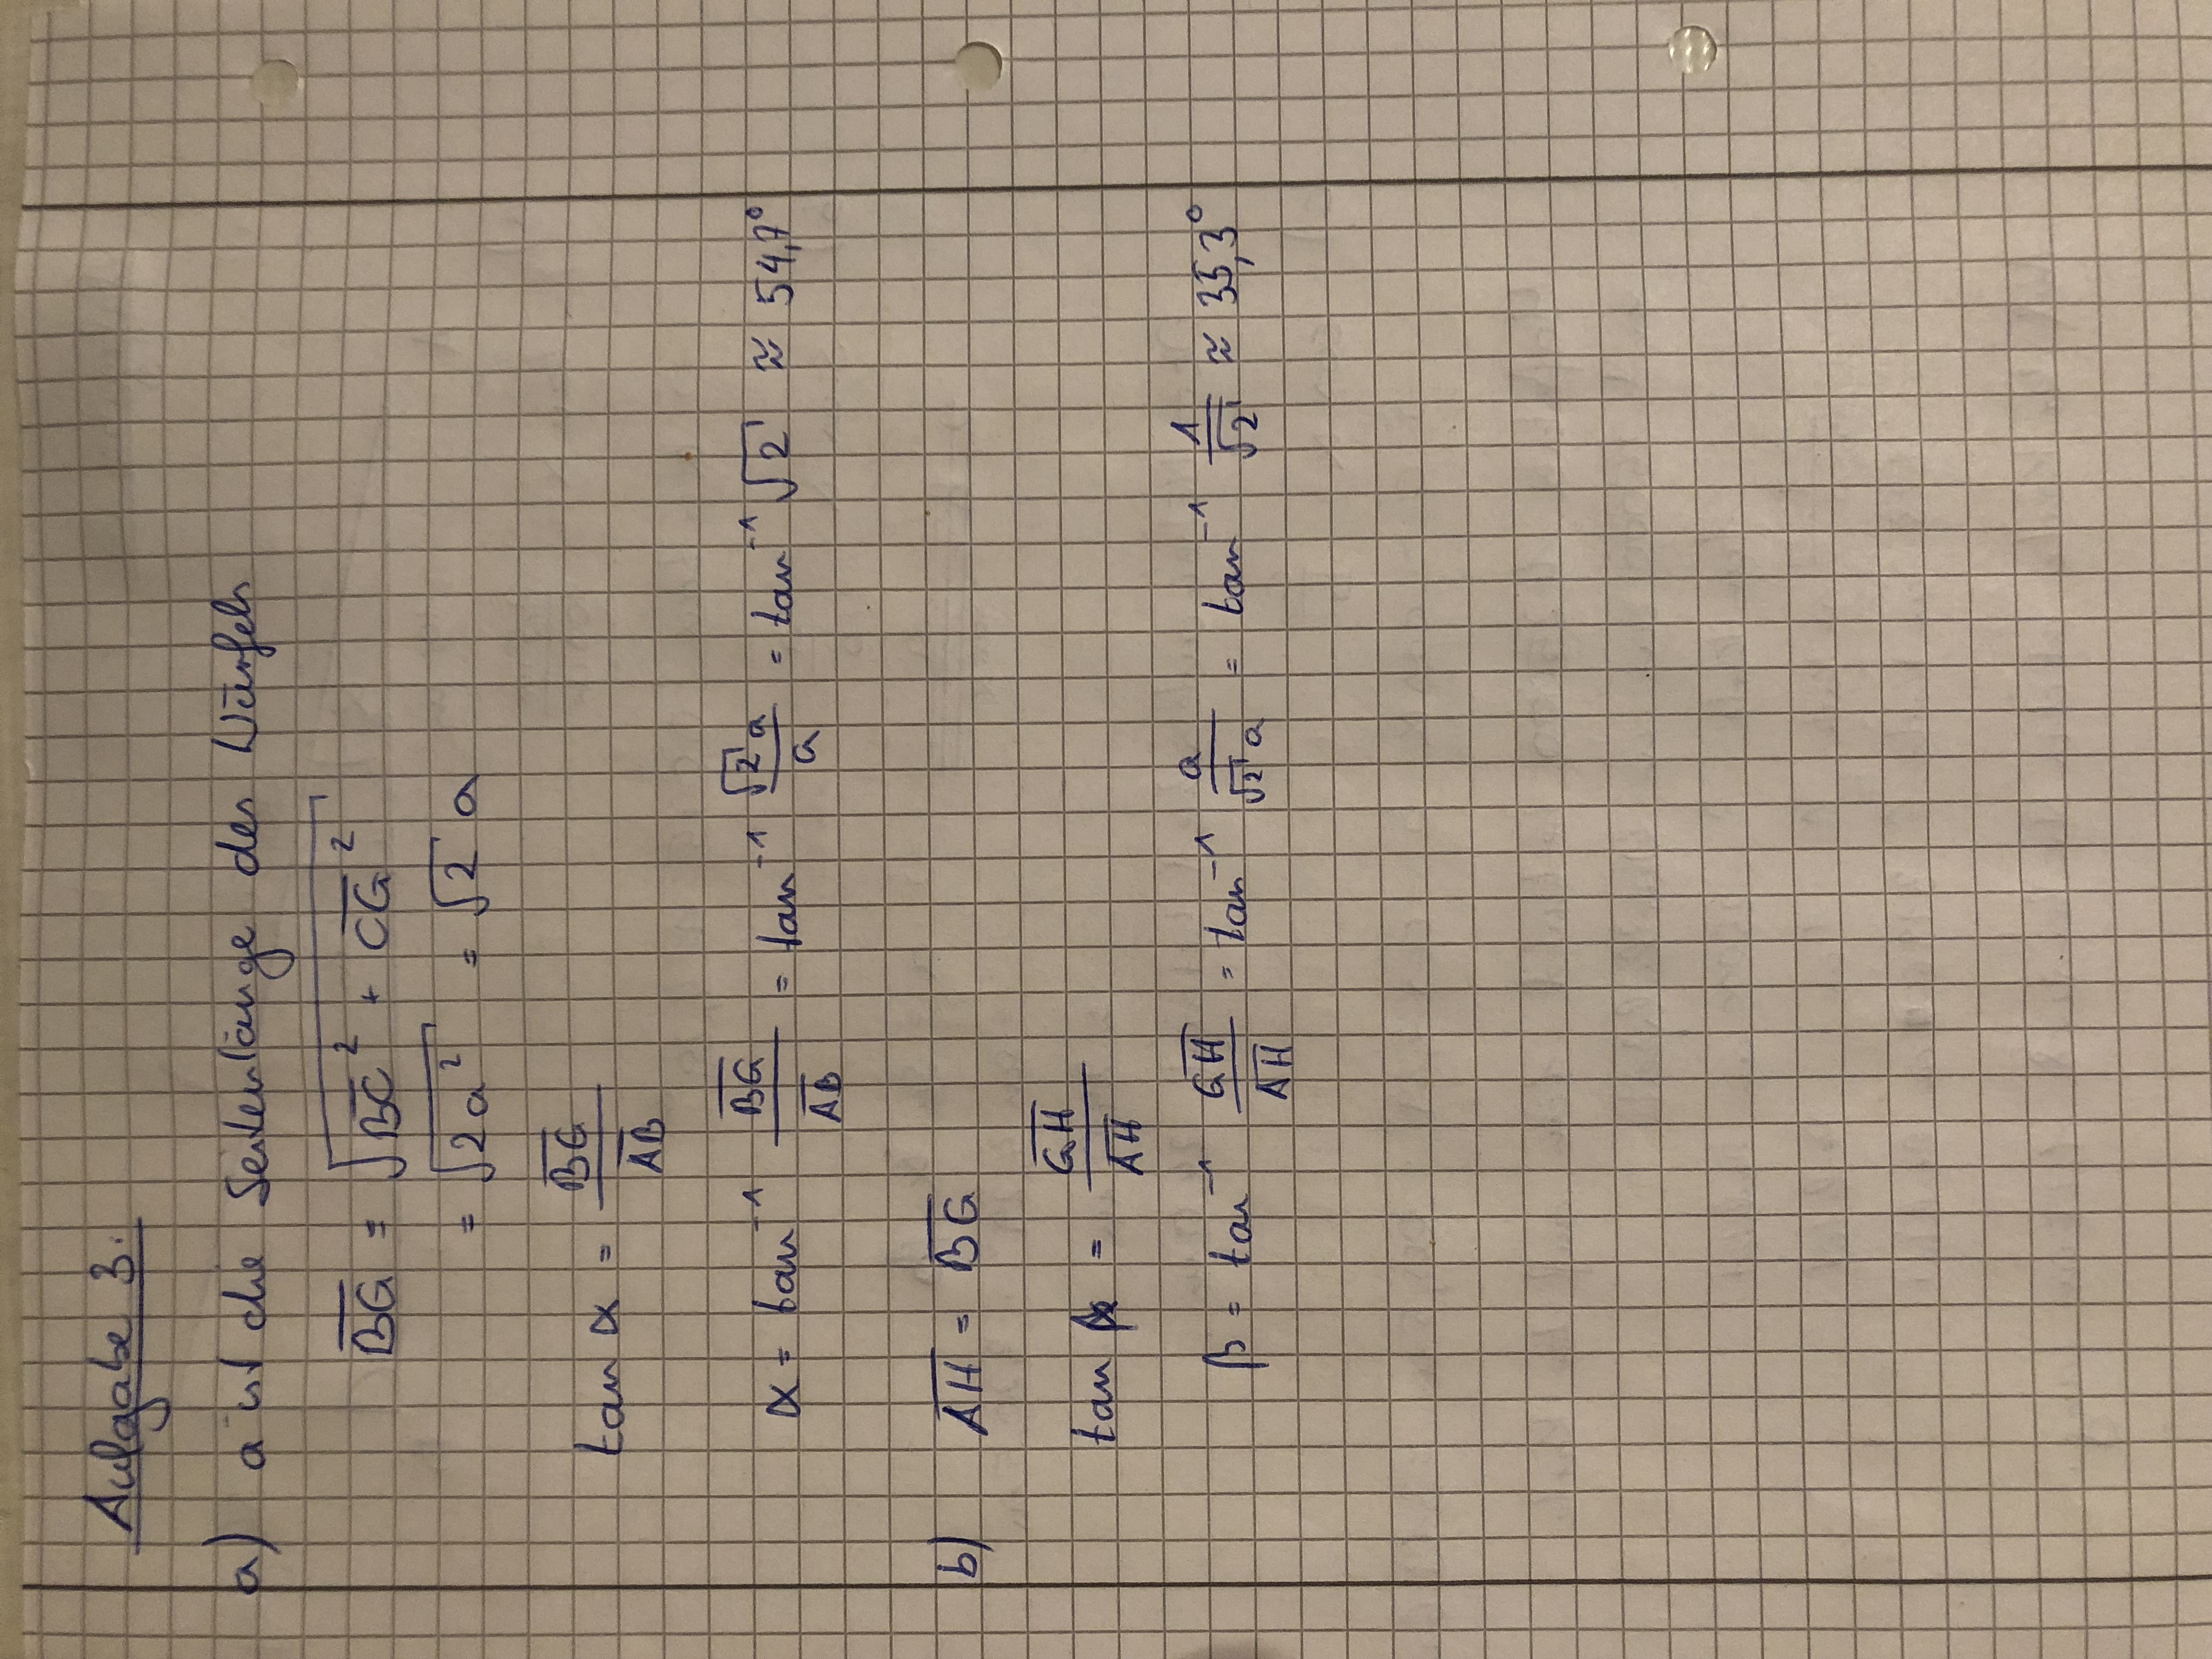 Aufgabe 3:
a) a ist die Seitenlänge des Würfels
B̅G̅ = √(B̅C̅² + C̅G̅²)
= √(2a²) = √2 a
tan α = B̅G̅/A̅B̅
α = tan⁻¹ B̅G̅/A̅B̅ = tan⁻¹ √2 a/a = tan⁻¹ √2 ≈ 54,7°
b) A̅H̅ = B̅G̅
tan β = G̅H̅/A̅H̅
β = tan⁻¹ G̅H̅/A̅H̅ = tan⁻¹ a/(√2 a) = tan⁻¹ 1/√2 ≈ 35,3°